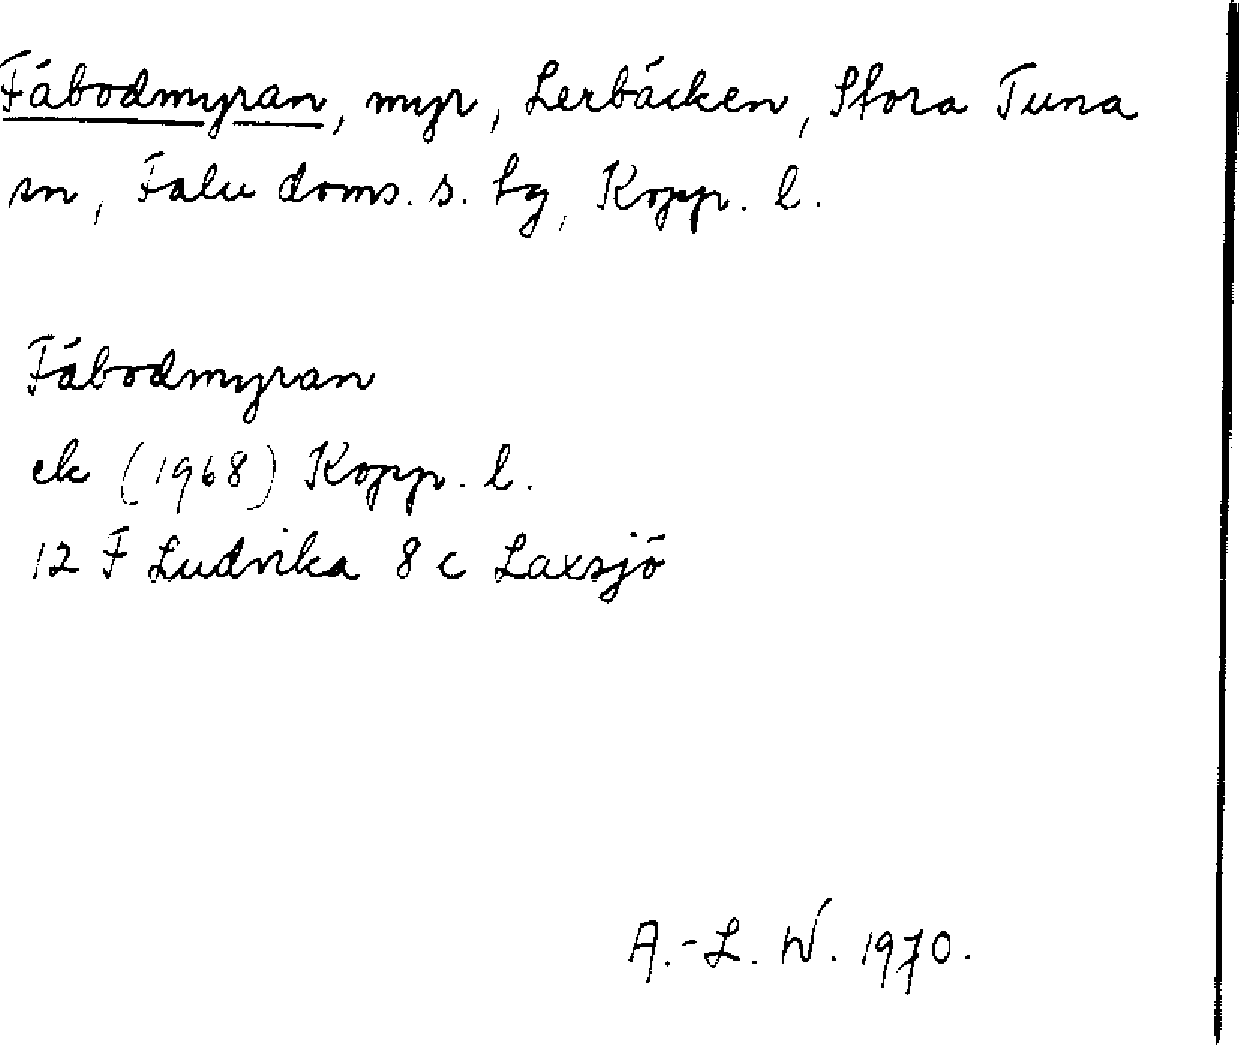 Fäbodmyran, myr, Lerbäcken, Stora Tuna
sn, Falu doms. s. tg, Kopp. l.
Fäbodmyran
ek (1968) Kopp. l.
12 F Ludvika 8 c Laxsjö
A.-L. W. 1970.